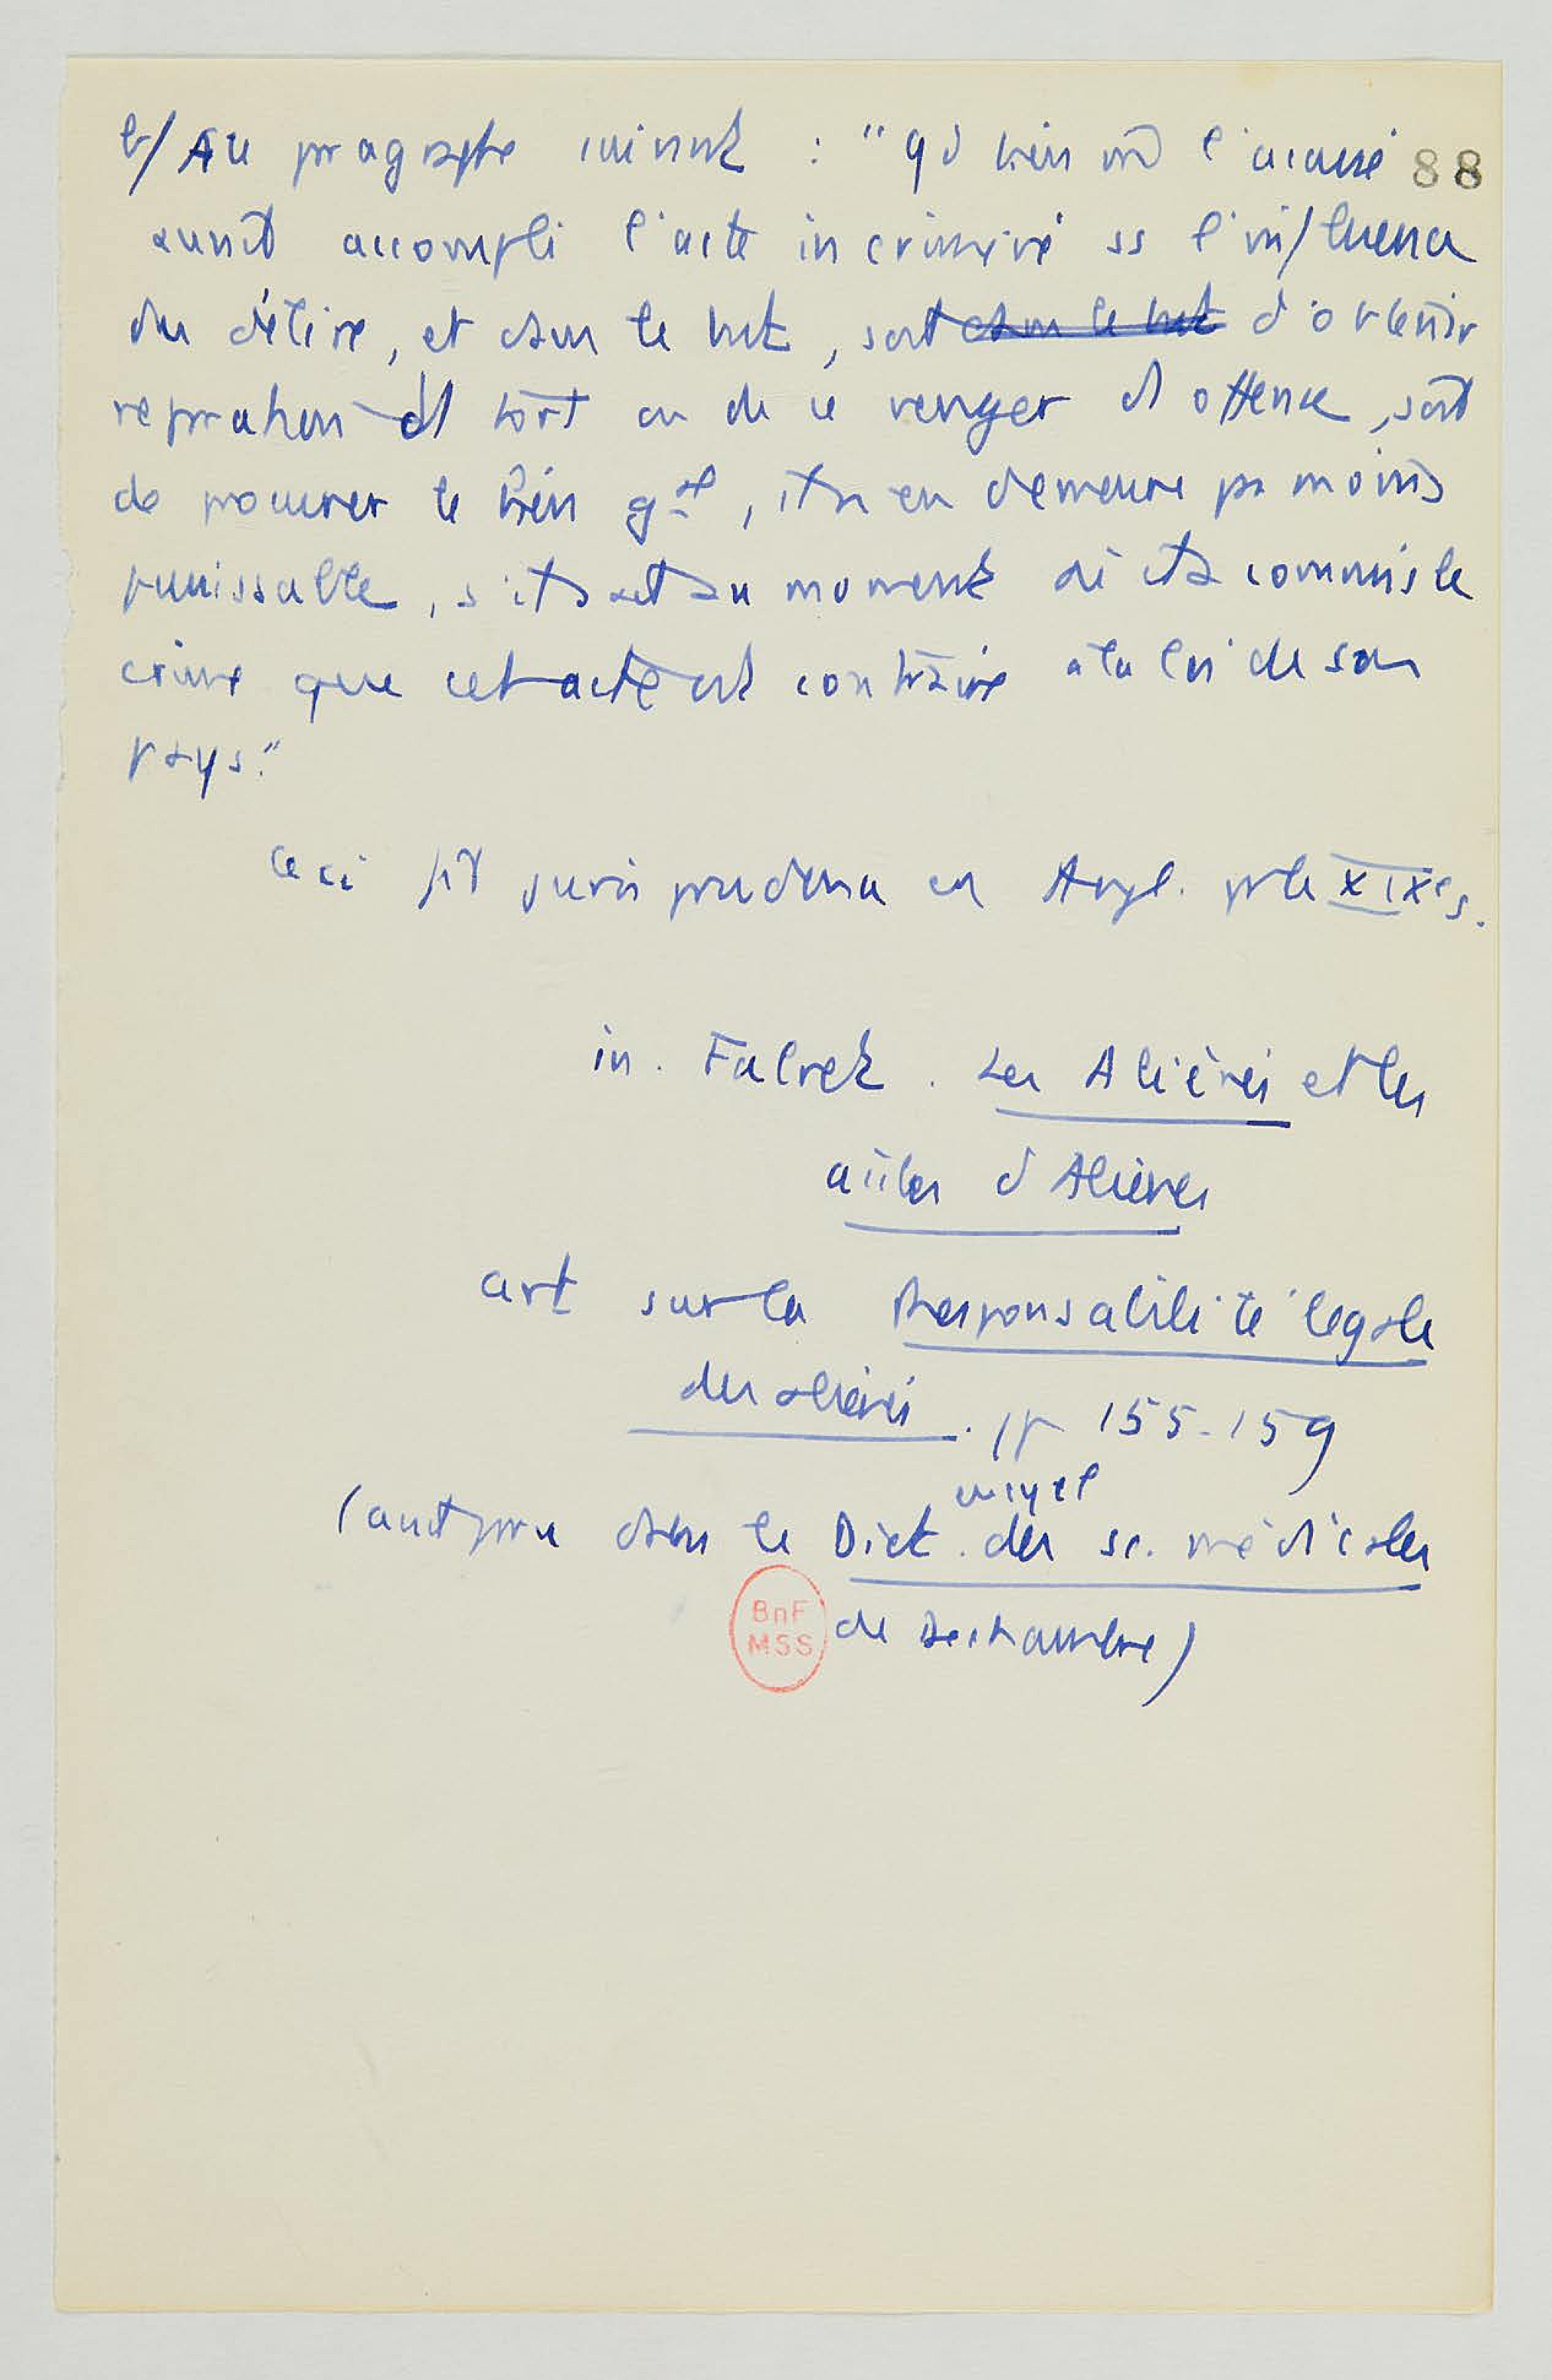 b/ Au paragraphe suivant : "qd bien m̄ l'accusé 88
aurait accompli l'acte incriminé ss l'influence
du délire, et dans le but, soit dans le but d'obtenir
réparation d'1 tort ou de se venger d'1 offense, soit
de procurer le bien gal, il n'en demeure pas moins
punissable, s'il sait au moment où il a commis le
crime que cet acte est contraire à la loi de son
pays."
Ceci fit jurisprudence en Angl. pr le XIXe s.
in. Falret. Les Aliénés et les
asiles d'Aliénés
art sur la Responsabilité légale
des aliénés. pp 155-159
(avait paru dans le Dict. encycl des sc. médicales
BnF
MSS
de Dechambre)